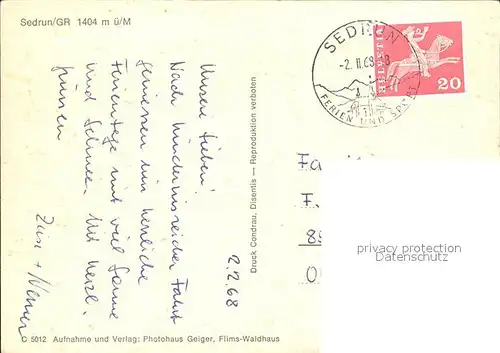 Sedrun/GR 1404 m ü/M
SEDRUN
-2. II. 68 -8
FERIEN UND SPORT
HELVETIA
20
2.2.68
Unsere Lieben!
Nach hindernisreicher Fahrt
geniessen wir herrliche
Ferientage mit viel Sonne
und Schnee. Mit herzl.
grüssen
+ Werner
Druck Condrau, Disentis — Reproduktion verboten
Fa
F.
8
privacy protection
Datenschutz
C 5012 Aufnahme und Verlag: Photohaus Geiger, Flims-Waldhaus